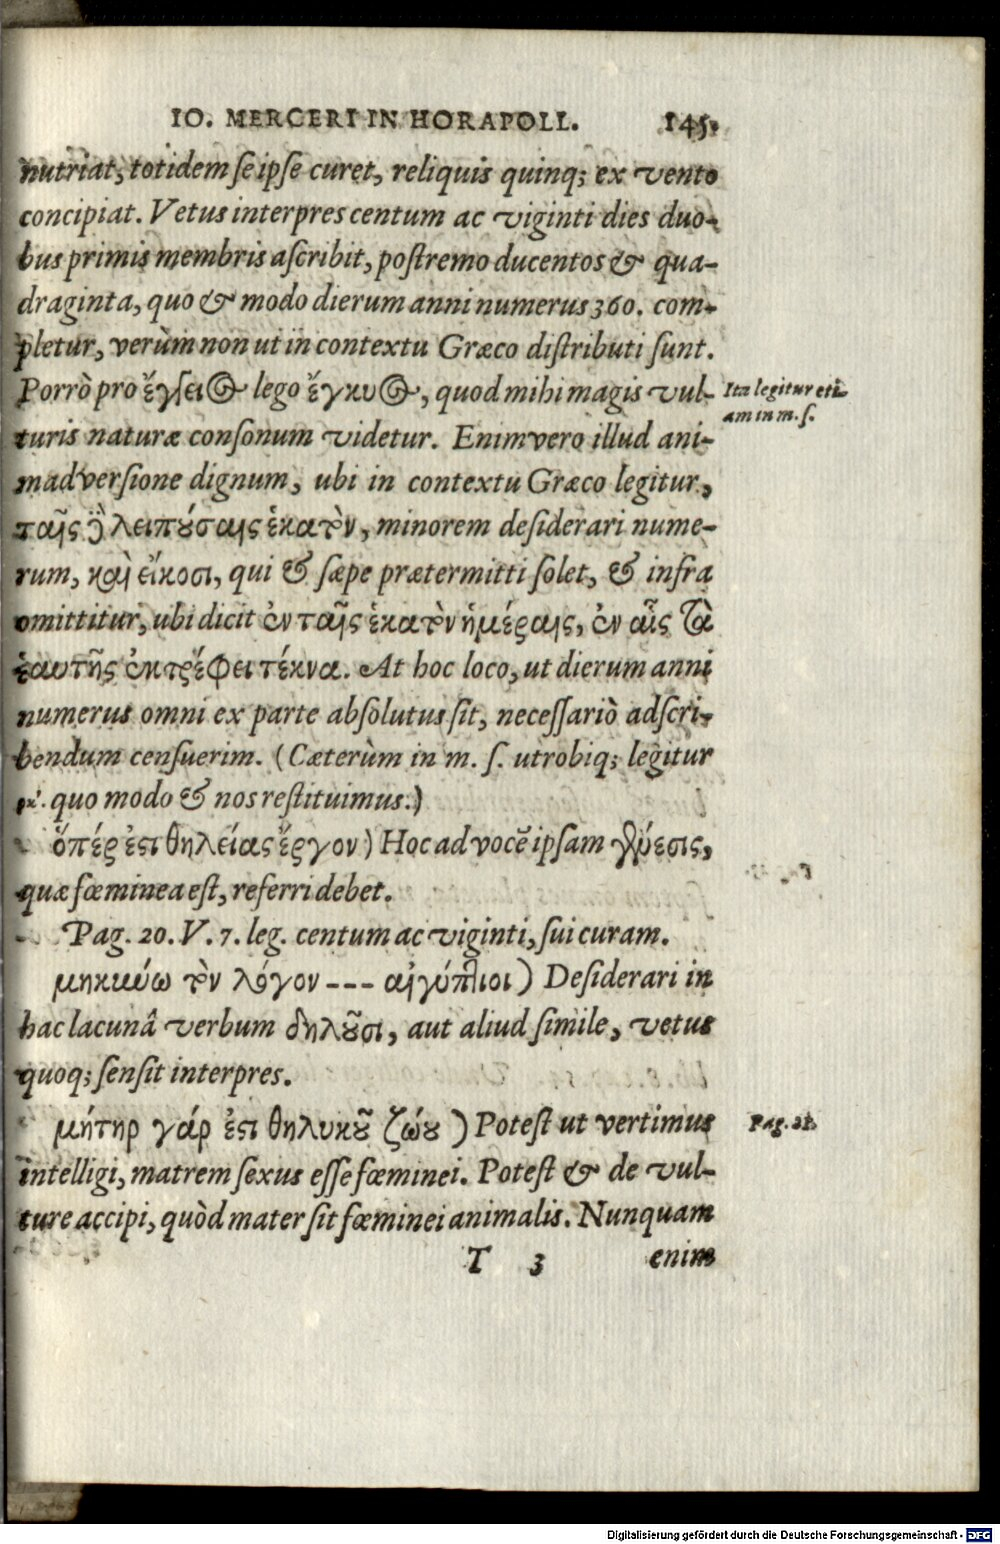 IO. MERCERI IN HORAPOLL. 145.
nutriat, totidem se ipse curet, reliquis quinq; ex vento
concipiat. Vetus interpres centum ac viginti dies duo-
bus primis membris ascribit, postremo ducentos & qua-
draginta, quo & modo dierum anni numerus 360. com-
pletur, verùm non ut in contextu Græco distributi sunt.
Porrò pro ἔγσειος lego ἔγκυος, quod mihi magis vul-
turis naturæ consonum videtur. Enimvero illud ani-
madversione dignum, ubi in contextu Græco legitur,
ταῖς ὃ λειπούσαις ἑκατὸν, minorem desiderari nume-
rum, καὶ εἴκοσι, qui & sæpe prætermitti solet, & infra
omittitur, ubi dicit ἐν ταῖς ἑκατὸν ἡμέραις, ἐν αἷς τὰ
ἑαυτῆς ἐκτρέφει τέκνα. At hoc loco, ut dierum anni
numerus omni ex parte absolutus sit, necessariò adscri-
bendum censuerim. (Cæterùm in m. s. utrobiq; legitur
ρκʹ. quo modo & nos restituimus.)
ὅπέρ ἐστι θηλείας ἔργον) Hoc ad vocẽ ipsam γλύεσις,
quæ fœminea est, referri debet.
Pag. 20. V. 7. leg. centum ac viginti, sui curam.
μηκύω τὸν λόγον --- αἰγύπτιοι) Desiderari in
hac lacunâ verbum δηλοῦσι, aut aliud simile, vetus
quoq; sensit interpres.
μήτηρ γάρ ἐστι θηλυκοῦ ζώου) Potest ut vertimus
intelligi, matrem sexus esse fœminei. Potest & de vul-
ture accipi, quòd mater sit fœminei animalis. Nunquam
T 3 enim
Ita legitur eti-
am in m. s.
Pag. 21.
Digitalisierung gefördert durch die Deutsche Forschungsgemeinschaft - DFG